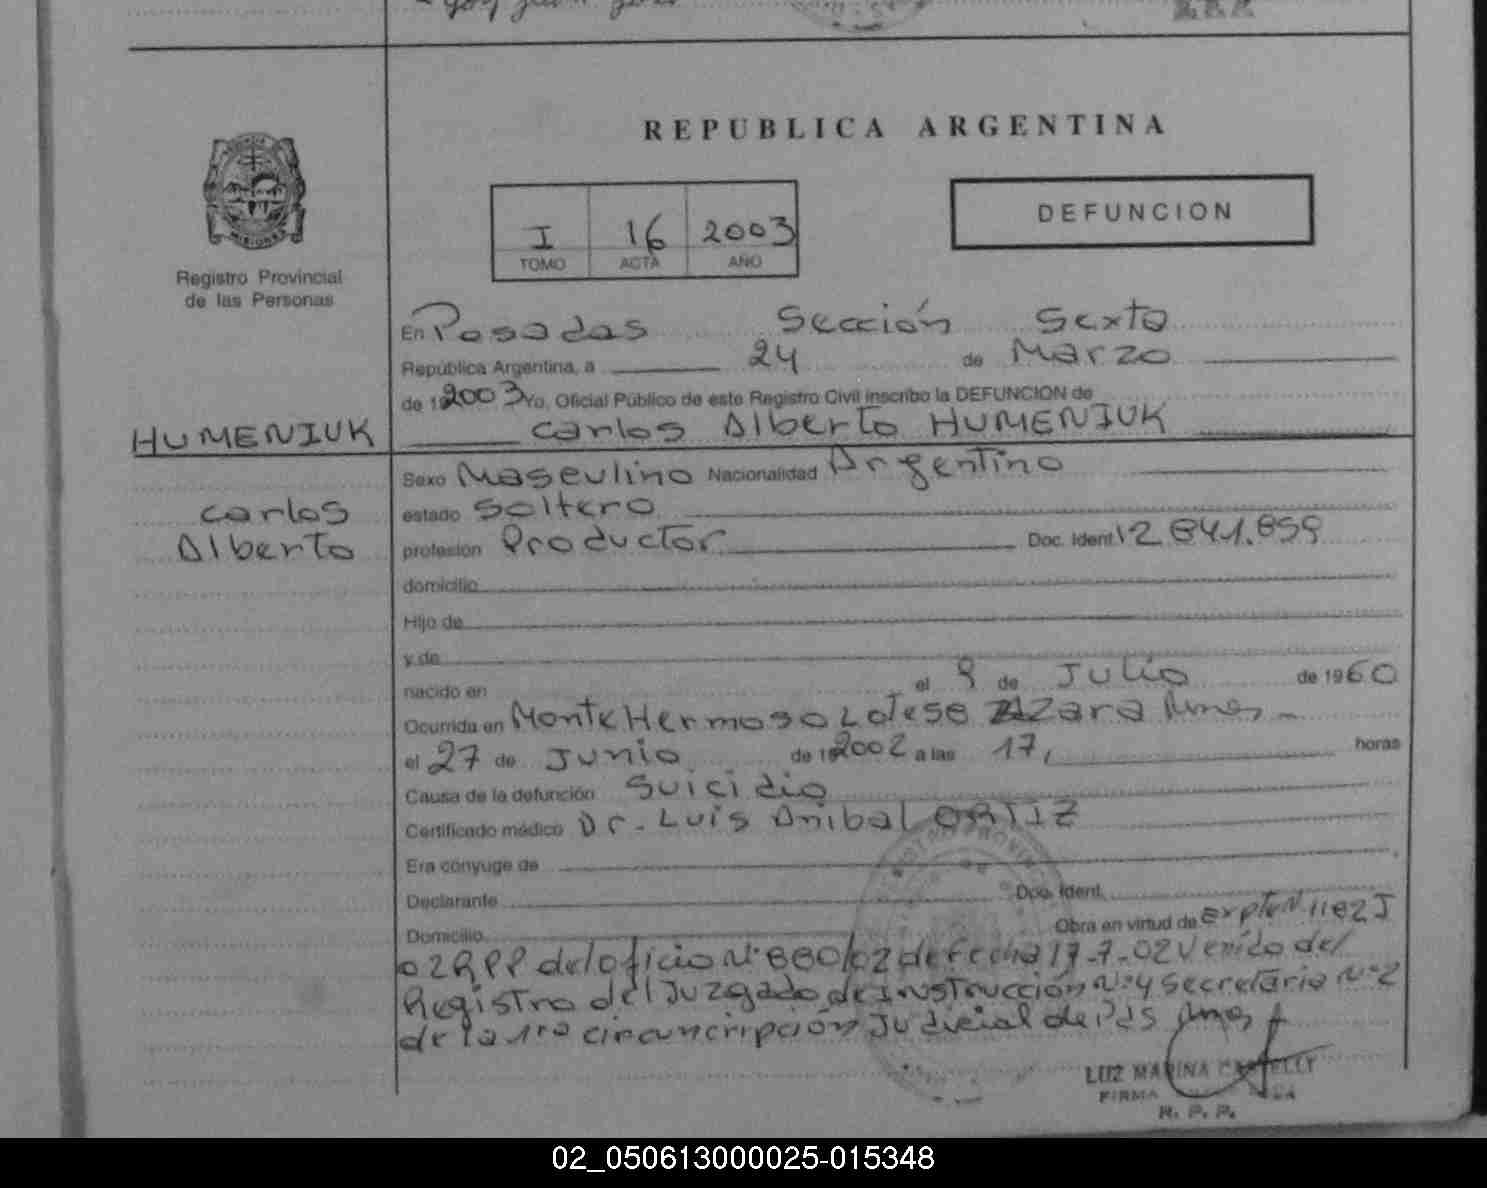 REPUBLICA ARGENTINA
I 16 2003
TOMO ACTA AÑO
DEFUNCION
MISIONES
Registro Provincial
de las Personas
En Posadas Sección Sexta
República Argentina, a 24 de Marzo
de 192003 Yo, Oficial Público de este Registro Civil inscribo la DEFUNCION de
HUMENIUK
Carlos Alberto HUMENIUK
Sexo Masculino Nacionalidad Argentino
Carlos
estado Soltero
Alberto
profesión Productor Doc. Ident. 12.841.859
domicilio
Hijo de
y de
nacido en el 9 de Julio de 1960
Ocurrida en Monte Hermoso Lote 58 Azara Mnes
el 27 de Junio de 192002 a las 17, horas
Causa de la defunción Suicidio
Certificado médico Dr. Luis Anibal ORTIZ
Era cónyuge de
Declarante Doc. Ident.
Domicilio Obra en virtud de Expte Nº 1182 J
02 RPP del oficio Nº 880/02 de fecha 17-7-02 Venido del
Registro del Juzgado de Instrucción Nº 4 Secretaria Nº 2
de la 1ra circuncripción Judicial de Pdas Mnes
LUZ MARINA
FIRMA
R. P. P.
02_050613000025-015348